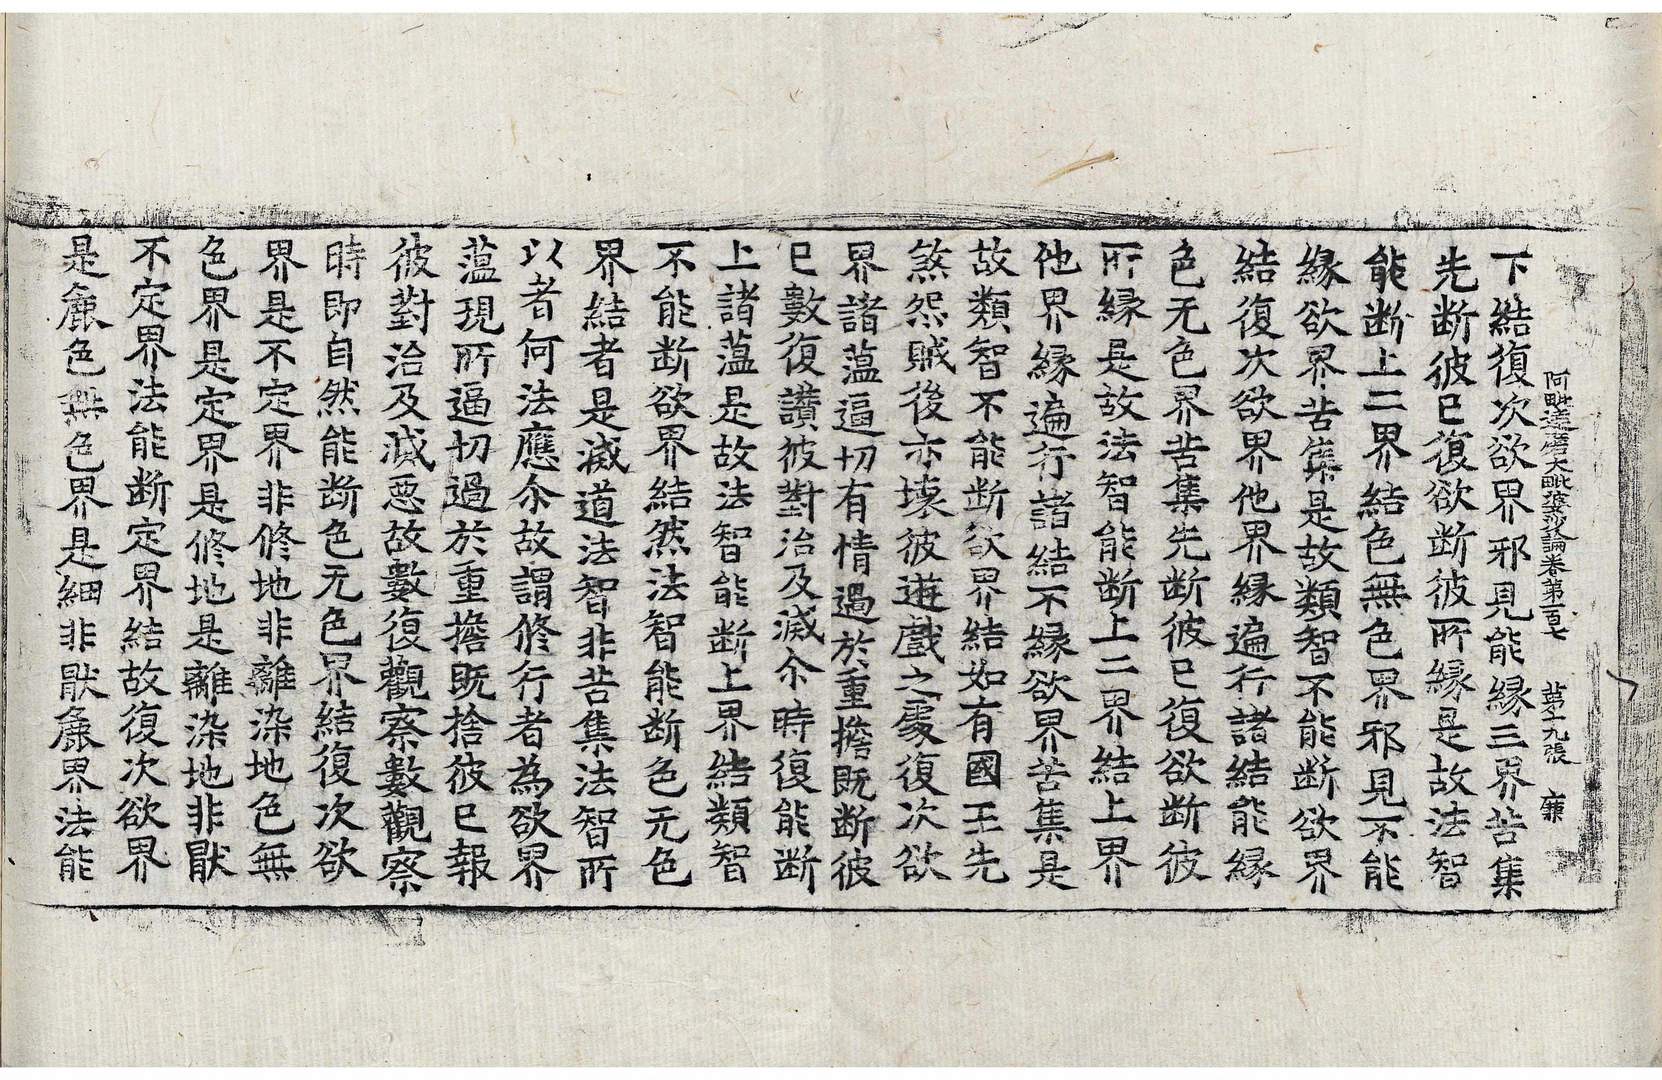 阿毗達磨大毗婆沙論卷第一百七　第十九張　廉
下結復次欲界邪見能縁三界苦集
先断彼已復欲断彼所縁是故法智
能断上二界結色無色界邪見不能
縁欲界苦集是故類智不能断欲界
結復次欲界他界縁遍行諸結能縁
色无色界苦集先断彼已復欲断彼
所縁是故法智能断上二界結上界
他界縁遍行諸結不縁欲界苦集是
故類智不能断欲界結如有國王先
煞怨賊後亦壊彼遊戲之處復次欲
界諸薀逼切有情過於重擔既断彼
已數復讃彼對治及滅尒時復能断
上諸薀是故法智能断上界結類智
不能断欲界結然法智能断色无色
界結者是滅道法智非苦集法智所
以者何法應尒故謂修行者為欲界
薀現所逼切過於重擔既捨彼已報
彼對治及滅恶故數復觀察數觀察
時即自然能断色无色界結復次欲
界是不定界非修地非離染地色無
色界是定界是修地是離染地非猒
不定界法能断定界結故復次欲界
是麁色無色界是細非猒麁界法能